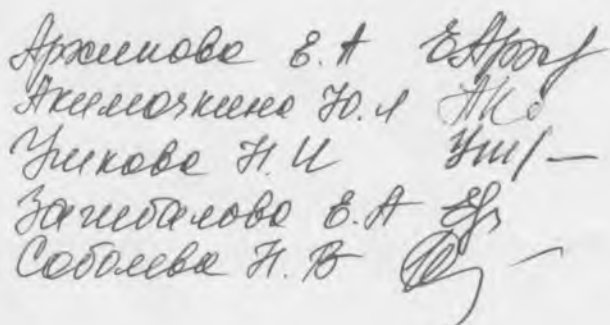 Архипова Е.А
Акимочкина Ю.А
Ушкова Н.И
Загибалова Е.А
Соболева Н.В